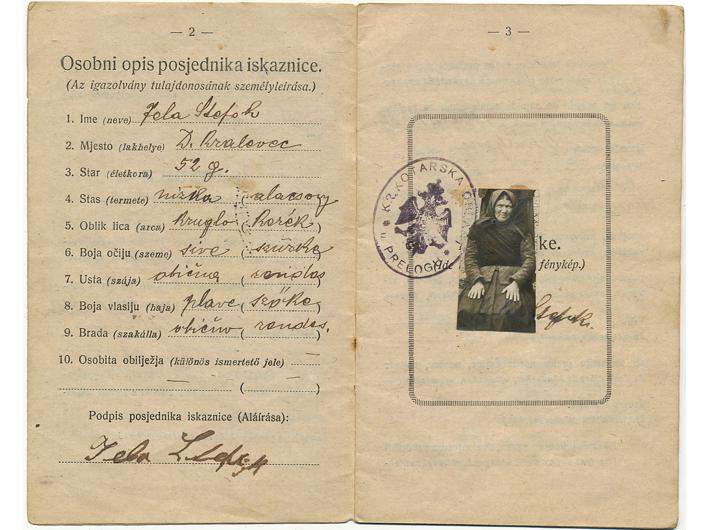 — 2 —
Osobni opis posjednika iskaznice.
(Az igazolvány tulajdonosának személyleírása.)
1. Ime (neve) Jela Štefok
2. Mjesto (lakhelye) D. Kralevec
3. Star (életkora) 52 g.
4. Stas (termete) nizka (alacsony
5. Oblik lica (arca) kruglo (kerék)
6. Boja očiju (szeme) sive (szürke
7. Usta (szája) obična (rendes
8. Boja vlasiju (haja) plave (szőke)
9. Brada (szakálla) obično (rendes.
10. Osobita obilježja (különös ismertető jele) (—)
— (—)
Podpis posjednika iskaznice (Aláírása):
Jela
— 3 —
KR. KOTARSKA
U PRELOGU
ke.
fénykép.)